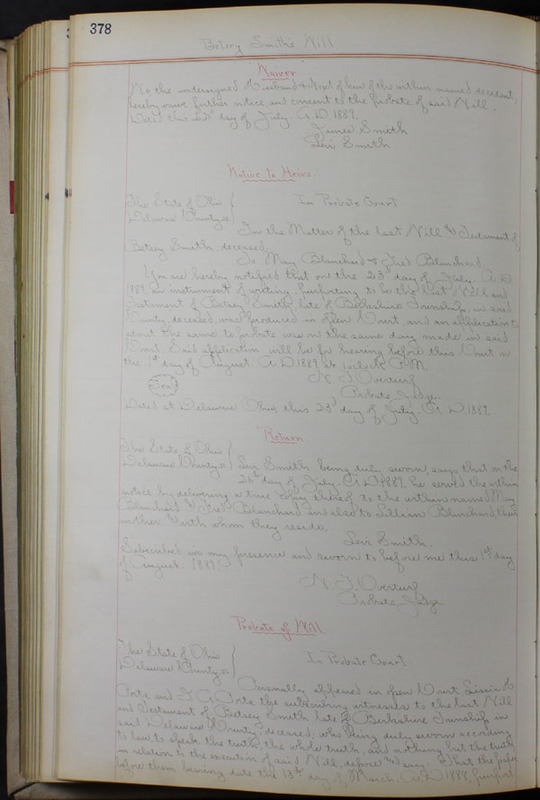 378
Betsey Smith's Will
Waiver
We, the undersigned Husband & Next of kin of the within named decedent,
hereby waive further notice, and consent to the probate of said Will.
Dated this day of July A.D. 1889.
James Smith
Levi Smith
Notice to Heirs
The State of Ohio } In Probate Court
Delaware County ss
In the Matter of the last Will and Testament of
Betsey Smith, deceased,
To May Blanchard & Fred Blanchard
You are hereby notified that on the 23d day of July A.D.
1889 an instrument of writing, purporting to be the last Will and
Testament of Betsey Smith, late of Berkshire Township, in said
County, deceased, was produced in open Court and an application to
admit the same to probate was on the same day made in said
Court. Said application will be for hearing before this Court on
the 1st day of August A.D. 1889 at 1 o'clock P.M.
(Seal) N. F. Overturf
Probate Judge
Dated at Delaware Ohio, this 23d day of July A.D. 1889
Return
The State of Ohio }
Delaware County ss Levi Smith being duly sworn, says that on the
day of July A.D. 1889, he served the within
notice by delivering a true copy thereof to the within named May
Blanchard & Fred Blanchard and also to Lillian Blanchard, their
mother with whom they reside.
Levi Smith.
Subscribed in my presence and sworn to before me this 1st day
of August 1889
N. F. Overturf
Probate Judge
Probate of Will
The State of Ohio } In Probate Court
Delaware County ss
Personally appeared in open Court
and the subscribing witnesses to the last Will
and Testament of Betsey Smith late of Berkshire Township in
said Delaware County, deceased, who being duly sworn according
to law to speak the truth, the whole truth, and nothing but the truth,
in relation to the execution of said Will, depose and say: That the paper
before them bearing date the 13th day of March A.D. 1888, purport